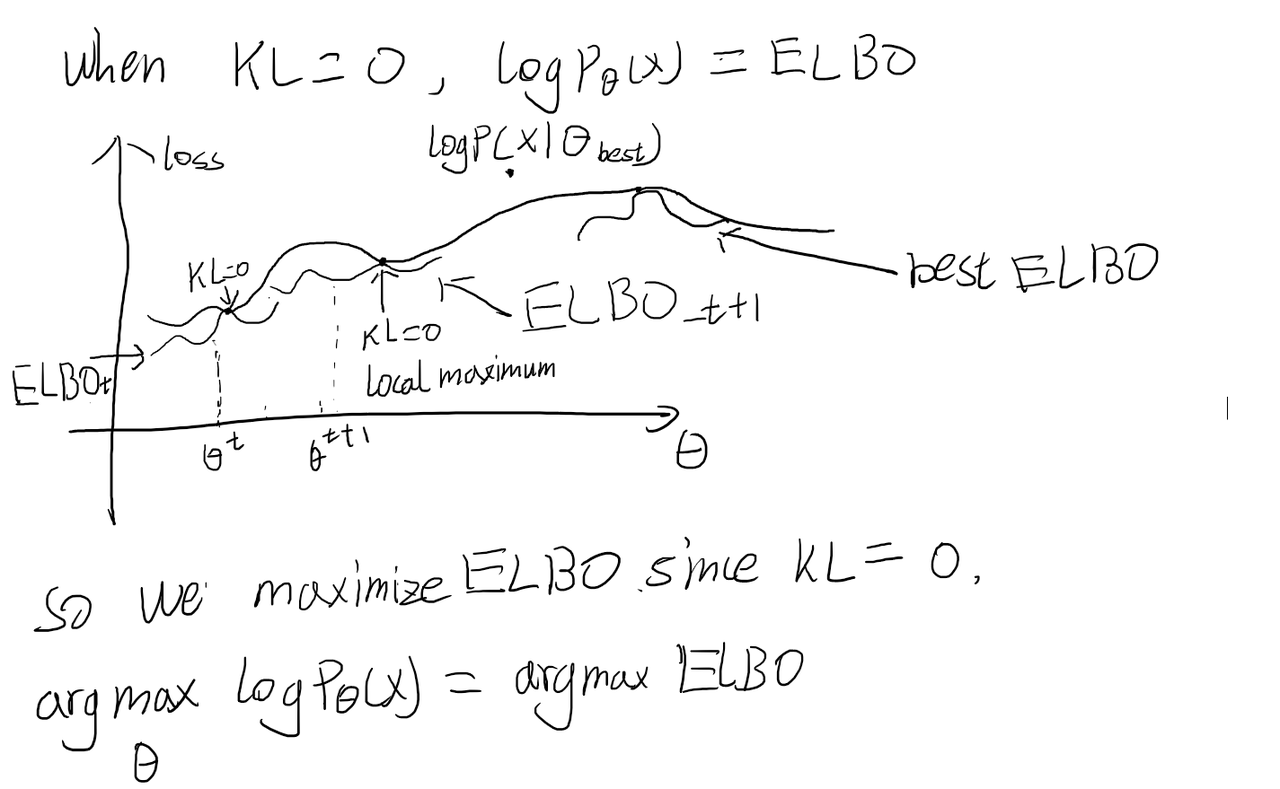 when KL=0, log Pθ(x) = ELBO
log P(x|θbest)
loss
KL=0
best ELBO
ELBO_t+1
KL=0
local maximum
ELBOt
θ^t
θ^t+1
θ
so we maximize ELBO since KL=0.
arg max log Pθ(x) = arg max ELBO
θ